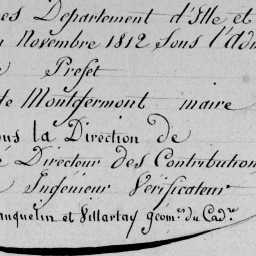 es Departement d'Ille et
n Novembre 1812 Sous l'Ad
Prefet
de Montgermont maire
ous la Direction de
é Directeur des Contribution
Ingénieur Vérificateur
nquelin et Villartay géom.es du Cad.re